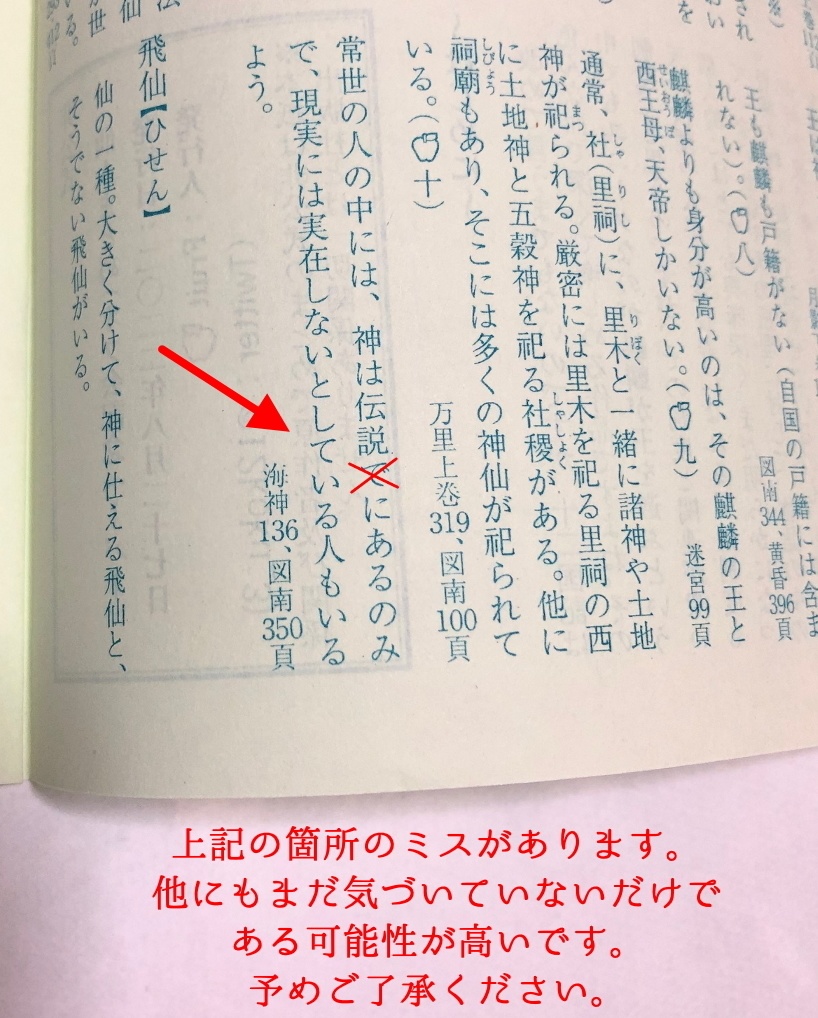 王も麒麟も戸籍がない（自国の戸籍には含ま
れない）。（八）
図南344、黄昏396頁
麒麟よりも身分が高いのは、その麒麟の王と
西王母、天帝しかいない。（九）
せいおうぼ
迷宮99頁
通常、社（里祠）に、里木と一緒に諸神や土地
しゃ りし りぼく
神が祀られる。厳密には里木を祀る里祠の西
まつ
に土地神と五穀神を祀る社稷がある。他に
しゃしょく
祠廟もあり、そこには多くの神仙が祀られて
しびょう
いる。（十）
万里上巻319、図南100頁
常世の人の中には、神は伝説でにあるのみ
で、現実には実在しないとしている人もいる
よう。
海神136、図南350頁
飛仙【ひせん】
仙の一種。大きく分けて、神に仕える飛仙と、
そうでない飛仙がいる。
上記の箇所のミスがあります。
他にもまだ気づいていないだけで
ある可能性が高いです。
予めご了承ください。